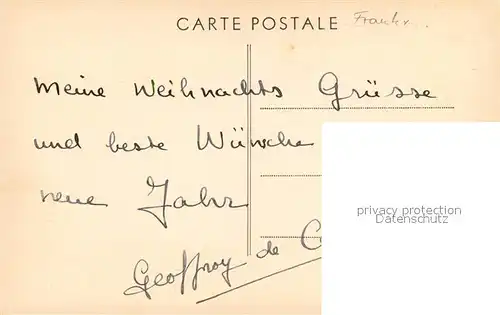 CARTE POSTALE Frankr.
Meine Weihnachts Grüsse
und beste Wünsche
neue Jahr
Geoffroy de
privacy protection
Datenschutz